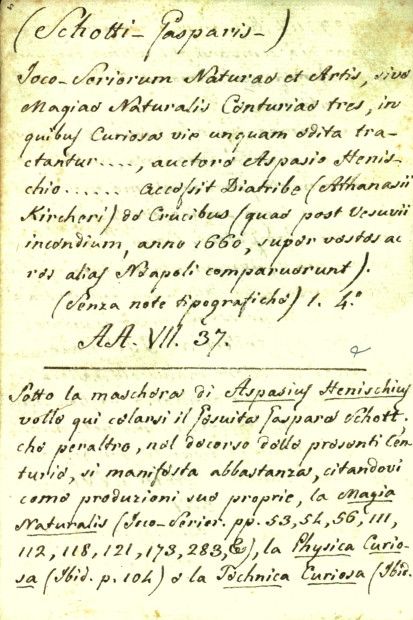 (Schotti - Gasparis -)
Joco-Seriorum Naturae et Artis, sive
Magiae Naturalis Centuriae tres, in
quibus Curiosa vix unquam edita tra-
ctantur...., auctore Aspasio Henis-
chio...... accessit Diatribe (Athanasii
Kircheri) de Crucibus (quae post Vesuvii
incendium, anno 1660, super vestes ac
res alias Neapoli comparuerunt).
(Senza note tipografiche) 1. 4.°
AA. VII. 37.
Sotto la maschera di Aspasius Henischius
volle qui celarsi il Gesuita Gaspare Schott.
che peraltro, nel decorso delle presenti Cen-
turie, si manifesta abbastanza, citandovi
come produzioni sue proprie, la Magia
Naturalis (Joco-Serior. pp. 53, 54, 56, 111,
112, 118, 121, 173, 283, &), la Physica Curio-
sa (Ibid. p. 104) e la Technica Curiosa (Ibid.